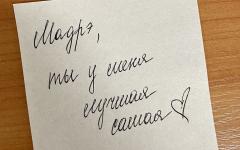 Мадрэ,
ты у меня
лучшая
самая